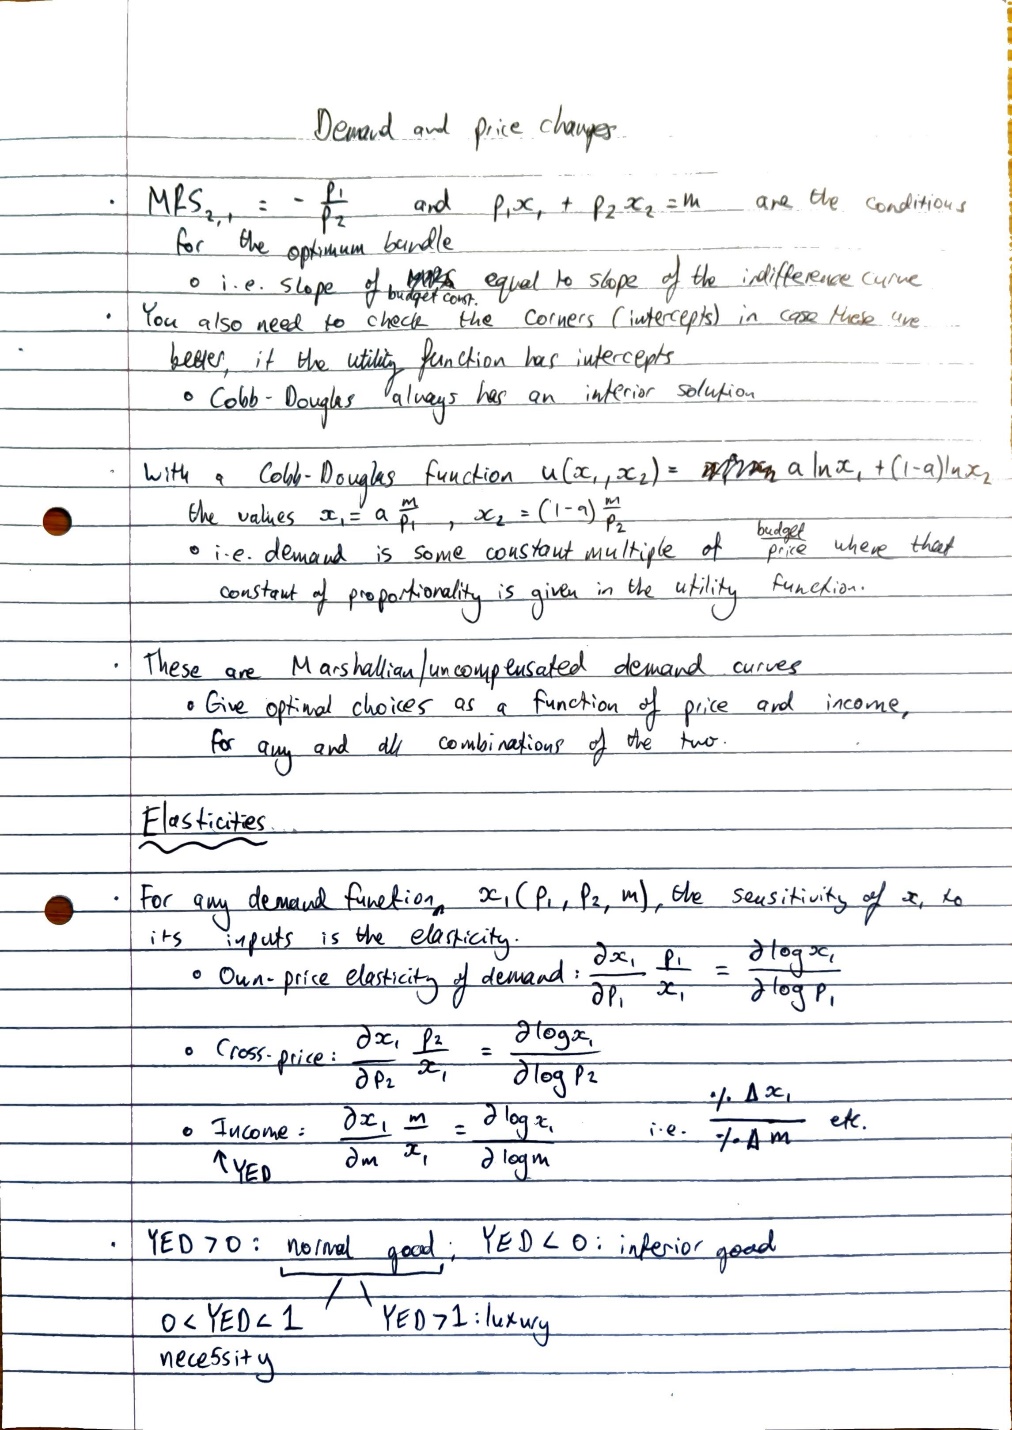 Demand and price changes
· MRS₂,₁ = - p₁/p₂ and p₁x₁ + p₂x₂ = m are the conditions
for the optimum bundle
∘ i.e. slope of budget const. equal to slope of the indifference curve
· You also need to check the corners (intercepts) in case these are
better, if the utility function has intercepts
∘ Cobb-Douglas always has an interior solution
· With a Cobb-Douglas function u(x₁,x₂) = a ln x₁ + (1-a) ln x₂
the values x₁ = a m/p₁ , x₂ = (1-a) m/p₂
∘ i.e. demand is some constant multiple of budget/price where that
constant of proportionality is given in the utility function.
· These are Marshallian/uncompensated demand curves
∘ Give optimal choices as a function of price and income,
for any and all combinations of the two.
Elasticities
· For any demand function, x₁(p₁, p₂, m), the sensitivity of x₁ to
its inputs is the elasticity.
∘ Own-price elasticity of demand: ∂x₁/∂p₁ p₁/x₁ = ∂log x₁/∂log p₁
∘ Cross-price: ∂x₁/∂p₂ p₂/x₁ = ∂log x₁/∂log p₂
∘ Income: ∂x₁/∂m m/x₁ = ∂log x₁/∂log m i.e. %Δx₁/%Δm etc.
↑YED
· YED > 0: normal good; YED < 0: inferior good
0 < YED < 1 YED > 1: luxury
necessity